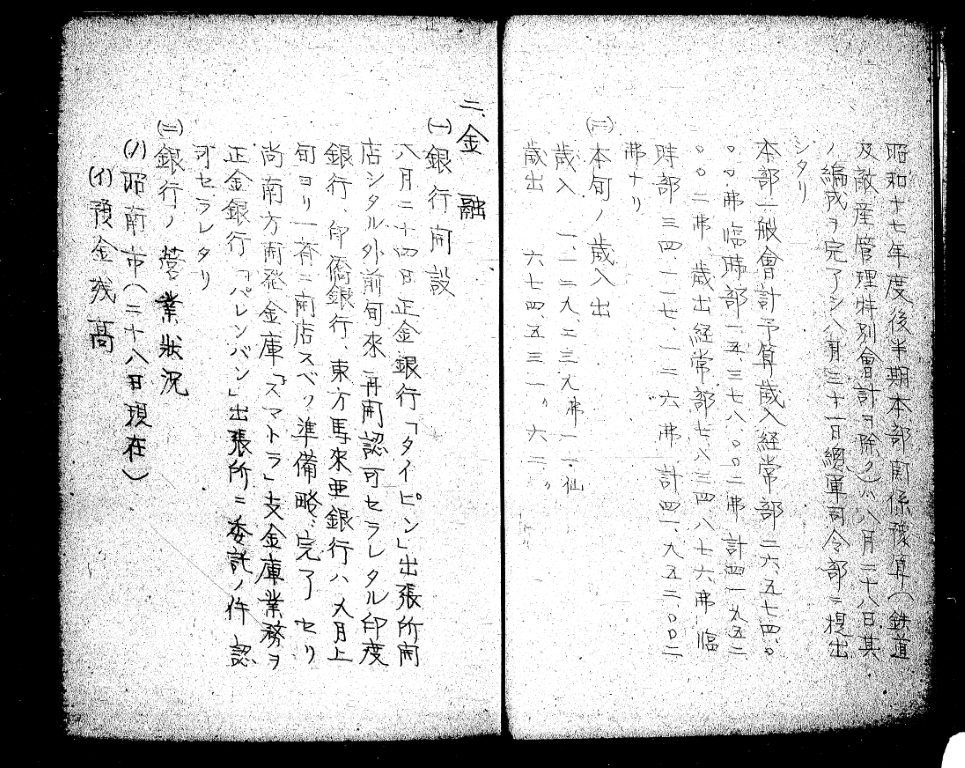 昭和十七年度後半期本部関係豫算(鉄道
及敵産管理特別會計ヲ除ク)ハ八月二十八日其
ノ編成ヲ完了シ八月三十一日總軍司令部ニ提出
シタリ
本部一般會計予算歳入経常部二六、五七四、〇
〇〇弗臨時部一五、三七八、〇〇二弗計四一、九五二
、〇〇二弗歳出経常部七、八三四、八七六弗臨
時部三四、一一七、一二六弗計四一、九五二、〇〇二
弗ナリ
(二)本旬ノ歳入出
歳入 一、一二九、二三九弗一一仙
歳出 六七四五三一〃六二〃
二、金融
(一)銀行開設
八月二十四日正金銀行「タイピン」出張所開
店シタル外前旬來再開認可セラレタル印度
銀行、印僑銀行、東方馬來亜銀行ハ九月上
旬ヨリ一斉ニ開店スベク準備略〻完了セリ
尚南方開発金庫「スマトラ」支金庫業務ヲ
正金銀行「パレンバン」出張所ニ委託ノ件認
可セラレタリ
(二)銀行ノ営業状況
(ハ)昭南市(二十八日現在)
(イ)預金残高